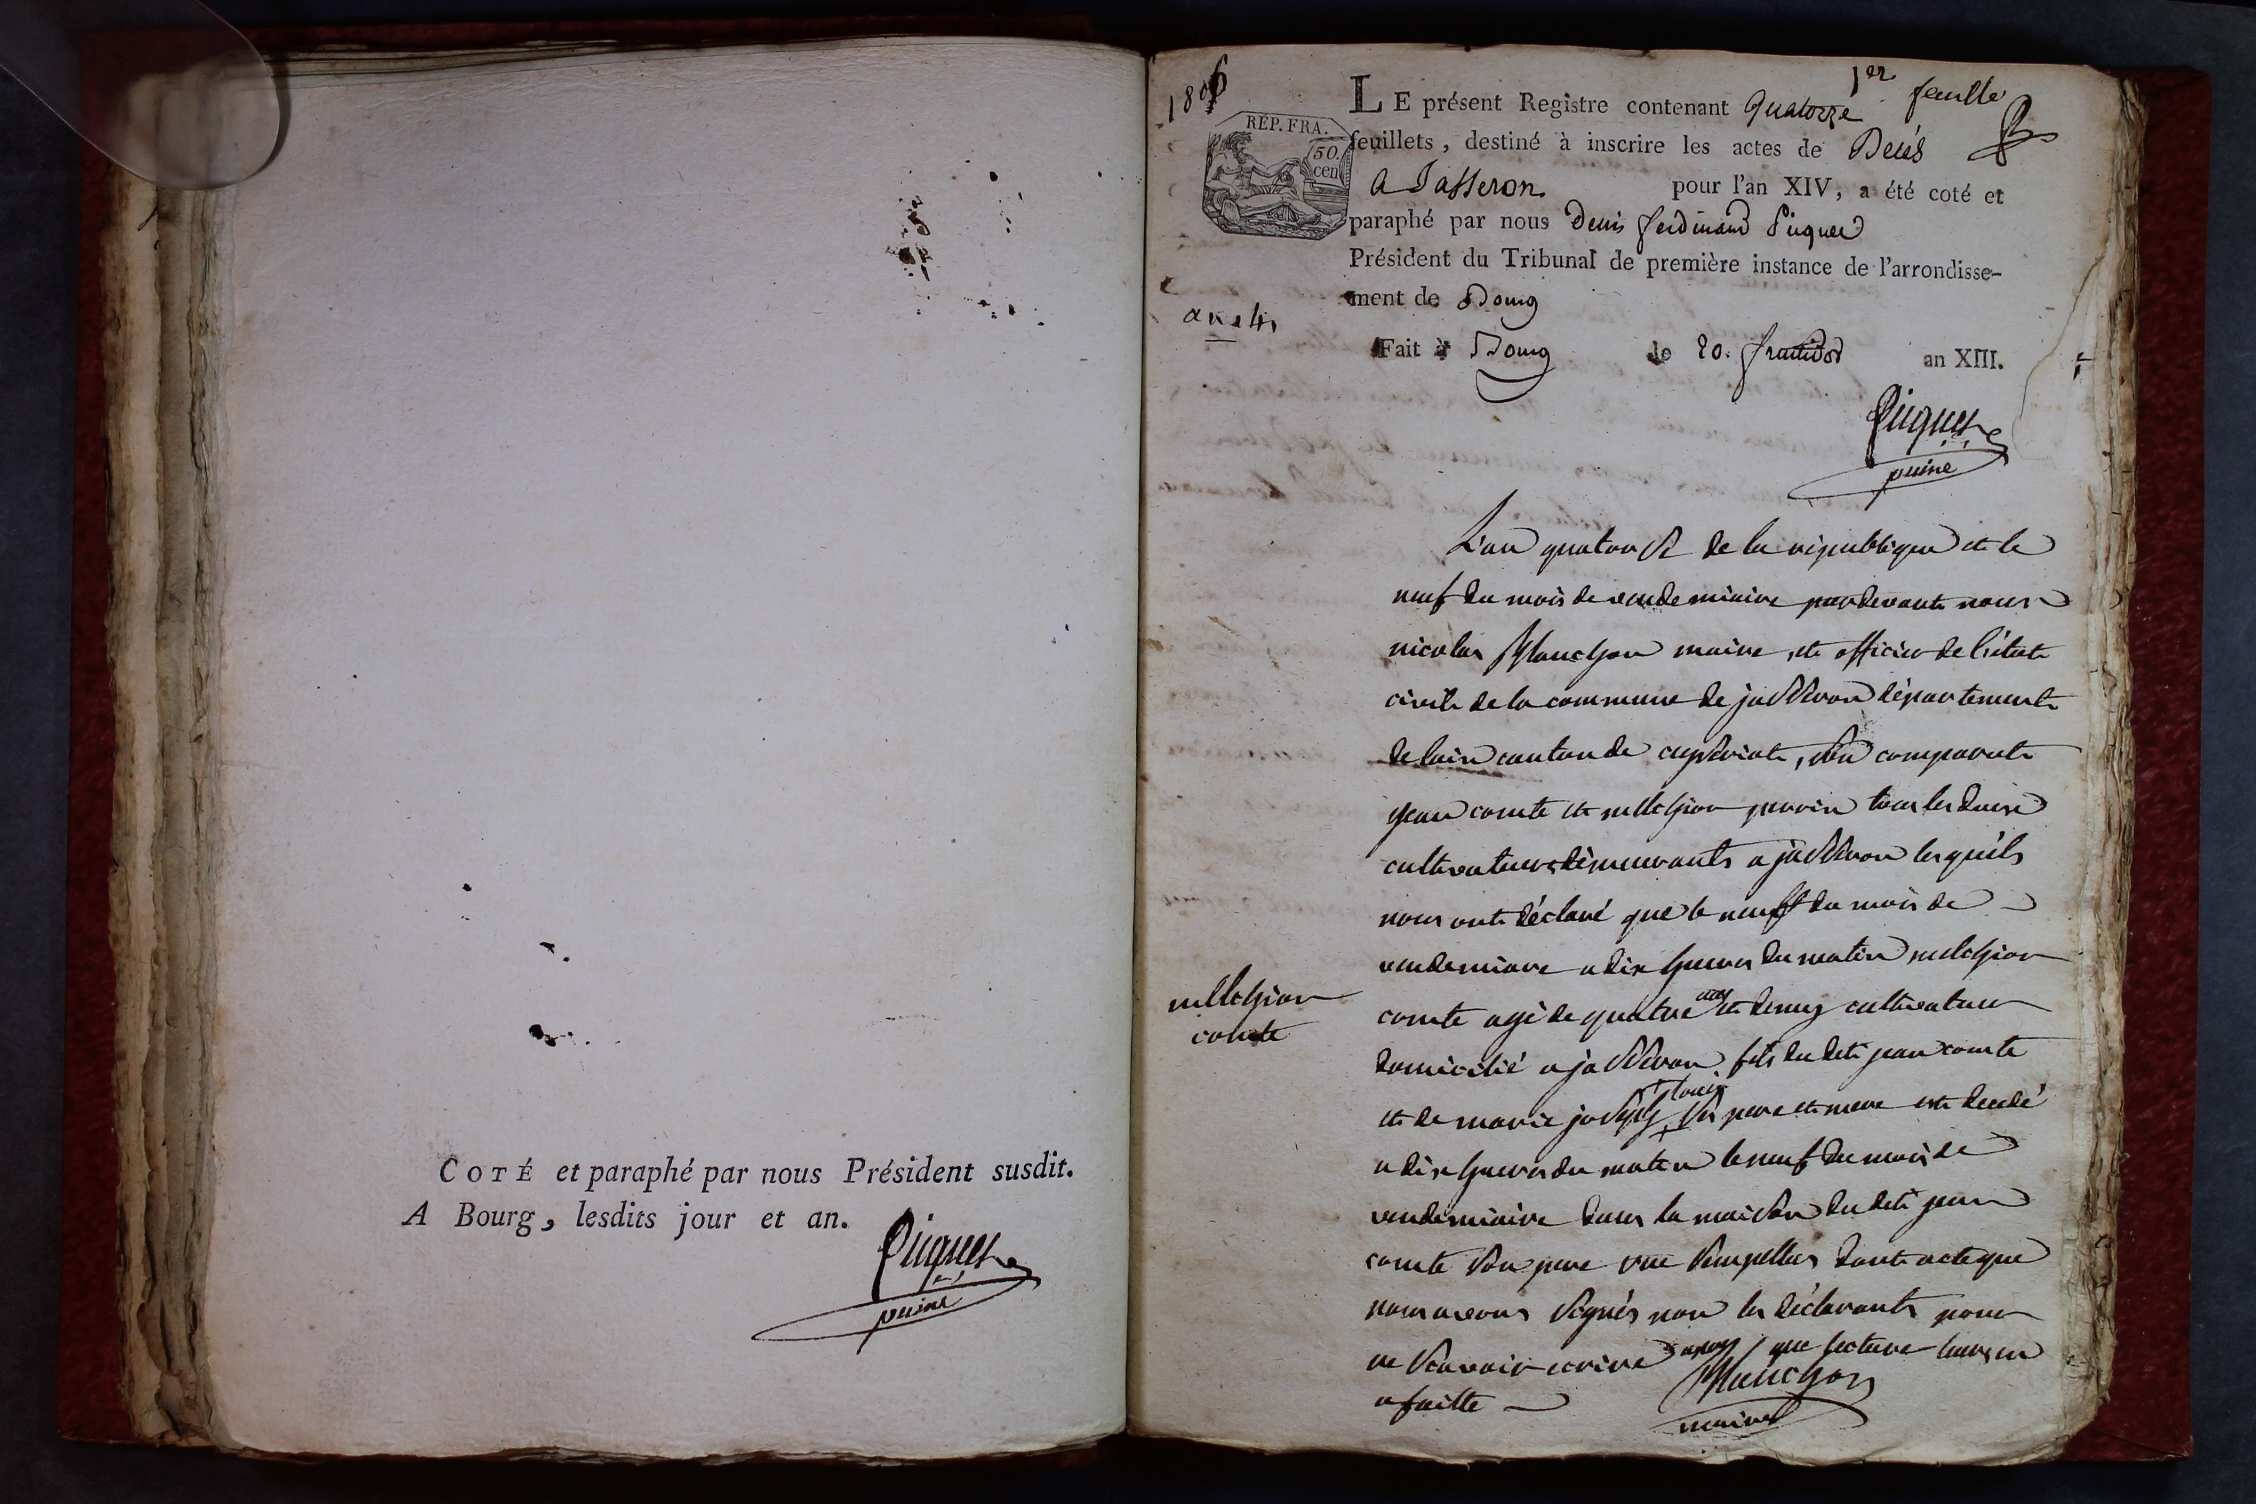 COTÉ et paraphé par nous Président susdit.
A Bourg, lesdits jour et an.
Picquet
puiné
1806
1er feuille
LE présent Registre contenant Quatorze
REP. FRA.
50
cen
feuillets, destiné à inscrire les actes de Décés
a Jasseron pour l'an XIV, a été coté et
paraphé par nous Denis ferdinand Picquet
Président du Tribunal de première instance de l'arrondisse-
ment de Bourg
an 14
Fait à Bourg le 20. fructidor an XIII.
Picquet
puiné
L'an quatorse de la république et le
neuf du mois de vendemiaire pardevant nous
nicolas Planchon maire et officier de l'état
civil de la commune de jasseron département
de lain canton de ceyseriat, son comparut
jean comte et melchior perrin tous les deux
cultivateurs demeurants a jasseron lesquels
nous ont déclaré que le neuf du mois de
vendemiare a dix heures du matin melchior
melchior
comte
comte agé de quatre ans et demy cultivateur
domicilié a jasseron fils du dit jean comte
et de marie josephe ses pere et mere est decedé
a dix heures du matin le neuf du mois de
vendemiaire dans la maison du dit jean
comte son pere rue dont acte que
nous avons signés non les déclarants pour
ne scavoir ecrire apres que lecture leurs en
a faitte
Planchon
maire